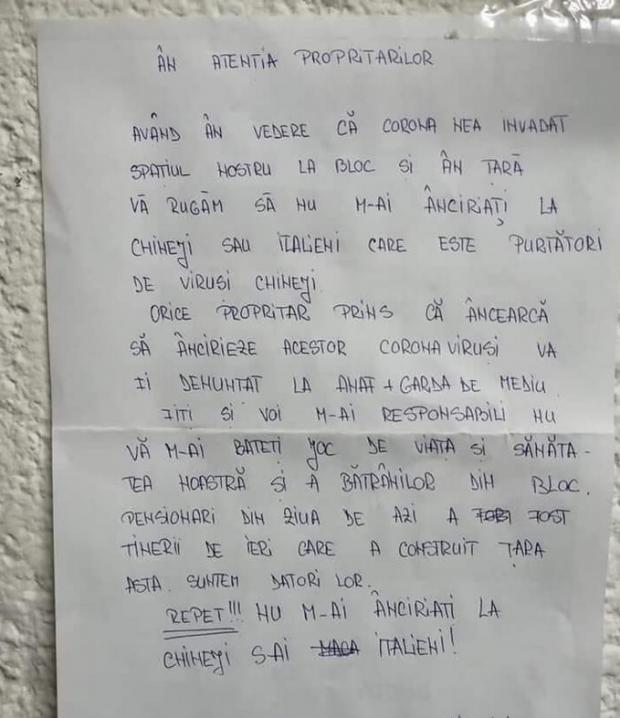 ÂN ATENTIA PROPRITARILOR
AVÂND ÂN VEDERE CĂ CORONA NEA INVADAT
SPATIUL NOSTRU LA BLOC SI ÂN TARĂ
VĂ RUGĂM SĂ NU M-AI ÂNCIRIAȚI LA
CHINEJI SAU ITALIENI CARE ESTE PURTĂTORI
DE VIRUSI CHINEJI.
ORICE PROPRITAR PRINS CĂ ÂNCEARCĂ
SĂ ÂNCIRIEZE ACESTOR CORONA VIRUSI VA
II DENUNTAT LA ANAF + GARDA DE MEDIU.
FITI SI VOI M-AI RESPONSABILI NU
VĂ M-AI BATETI JOC DE VIATA SI SĂNĂTA-
TEA NOASTRĂ SI A BĂTRÂNILOR DIN BLOC.
PENSIONARI DIN ZIUA DE AZI A FOST
TINERII DE IERI CARE A CONSTRUIT ȚARA
ASTA. SUNTEM DATORI LOR.
REPET!!! NU M-AI ÂNCIRIATI LA
CHINEJI SAI ITALIENI!